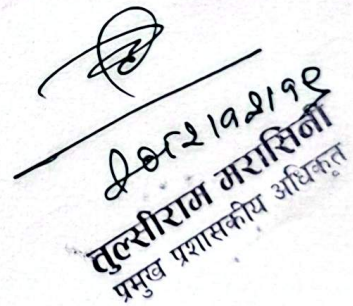 २०८२।१२।१९
तुल्सीराम मरासिनी
प्रमुख प्रशासकीय अधिकृत